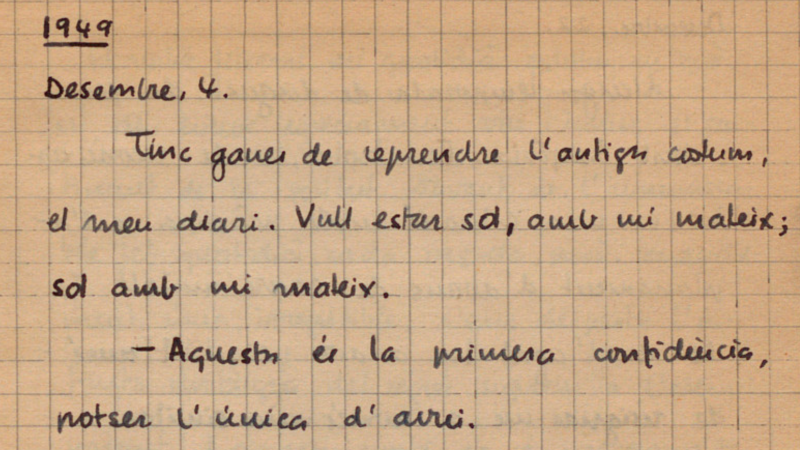 1949
Desembre, 4.
Tinc ganes de reprendre l'antign costum,
el meu diari. Vull estar sol, amb mi mateix;
sol amb mi mateix.
— Aquesta és la primera confidència,
potser l'única d'avui.